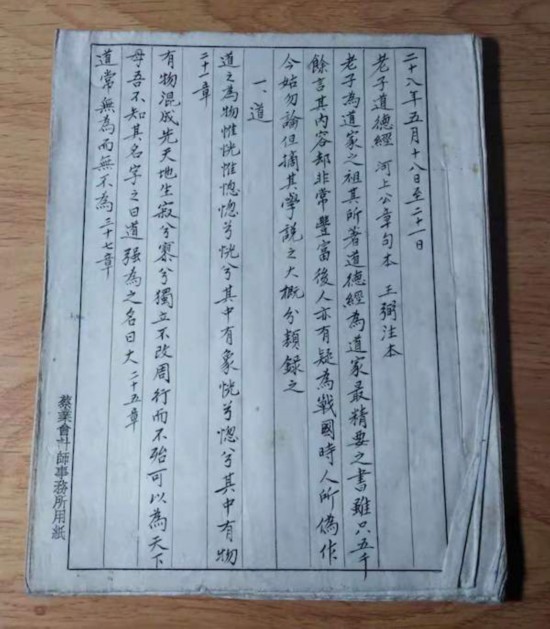 二十八年五月十八日至二十一日
老子道德經 河上公章句本 王弼注本
老子為道家之祖其所著道德經為道家最精要之書雖只五千
餘言其內容却非常豐富後人亦有疑為戰國時人所偽作
今姑勿論但摘其學說之大概分類錄之
一、道
道之為物惟恍惟惚惚兮恍兮其中有象恍兮惚兮其中有物
二十一章
有物混成先天地生寂兮寥兮獨立不改周行而不殆可以為天下
母吾不知其名字之曰道强為之名曰大 二十五章
道常無為而無不為 三十七章
蔡業會計師事務所用紙